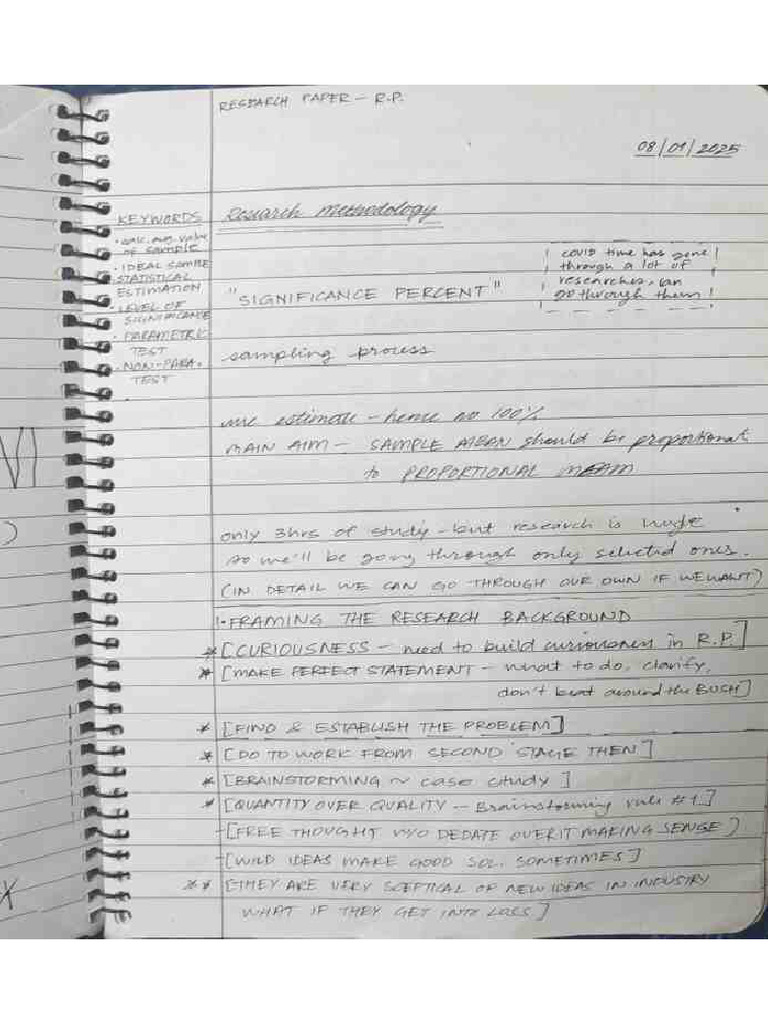 RESEARCH PAPER - R.P.
08/01/2025
Research Methodology
KEYWORDS
• calc. avg. value
OF SAMPLE
• IDEAL SAMPLE
• STATISTICAL
ESTIMATION
• LEVEL OF
SIGNIFICANCE
• PARAMETRIC
TEST
• NON-PARA.
TEST
covid time has gone
through a lot of
researches, can
go through them!
"SIGNIFICANCE PERCENT"
sampling process
we estimate - hence no 100%
MAIN AIM - SAMPLE MEAN should be proportionat
to PROPORTIONAL MEAM
only 3hrs of study - but research is huge
so we'll be going through only selected ones.
(IN DETAIL WE CAN GO THROUGH OUR OWN IF WE WANT)
1-FRAMING THE RESEARCH BACKGROUND
* [CURIOUSNESS - need to build curiousness in R.P.]
* [MAKE PERFECT STATEMENT - what to do, clarify,
don't beat around the BUSH]
* [FIND & ESTABLISH THE PROBLEM]
* [DO TO WORK FROM SECOND STAGE THEN]
* [BRAINSTORMING ~ case study ]
* [QUANTITY OVER QUALITY - Brainstorming rule #1]
-[FREE THOUGHT W/O DEDATE OVER IT MAKING SENSE]
-[WILD IDEAS MAKE GOOD SOL. SOMETIMES]
** [THEY ARE VERY SCEPTICAL OF NEW IDEAS IN INDUSTRY
WHAT IF THEY GET INTO LOSS]